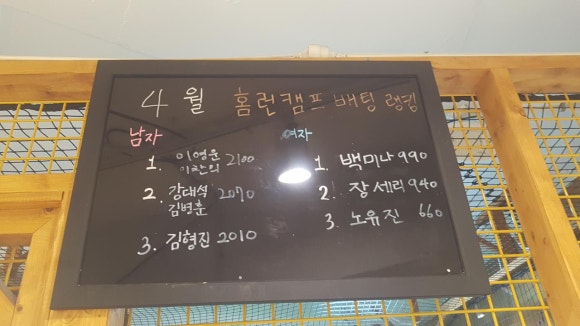 4월 홈런캠프 배팅 랭킹
남자
1. 이영운 2100
이찬의
2. 강대석 2070
김병훈
3. 김형진 2010
여자
1. 백미나 990
2. 장세리 940
3. 노유진 660